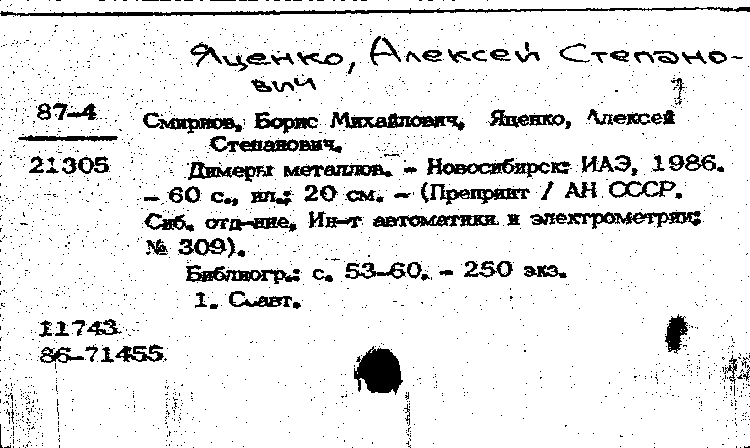 Яценко, Алексей Степано-
вич
87-4
Смирнов, Борис Михайлович, Яценко, Алексей
Степанович.
21305
Димеры металлов. - Новосибирск: ИАЭ, 1986.
- 60 с., ил.; 20 см. - (Препринт / АН СССР.
Сиб. отд-ние, Ин-т автоматики и электрометрии;
№ 309).
Библиогр.: с. 53-60. - 250 экз.
1. Соавт.
11743
86-71455